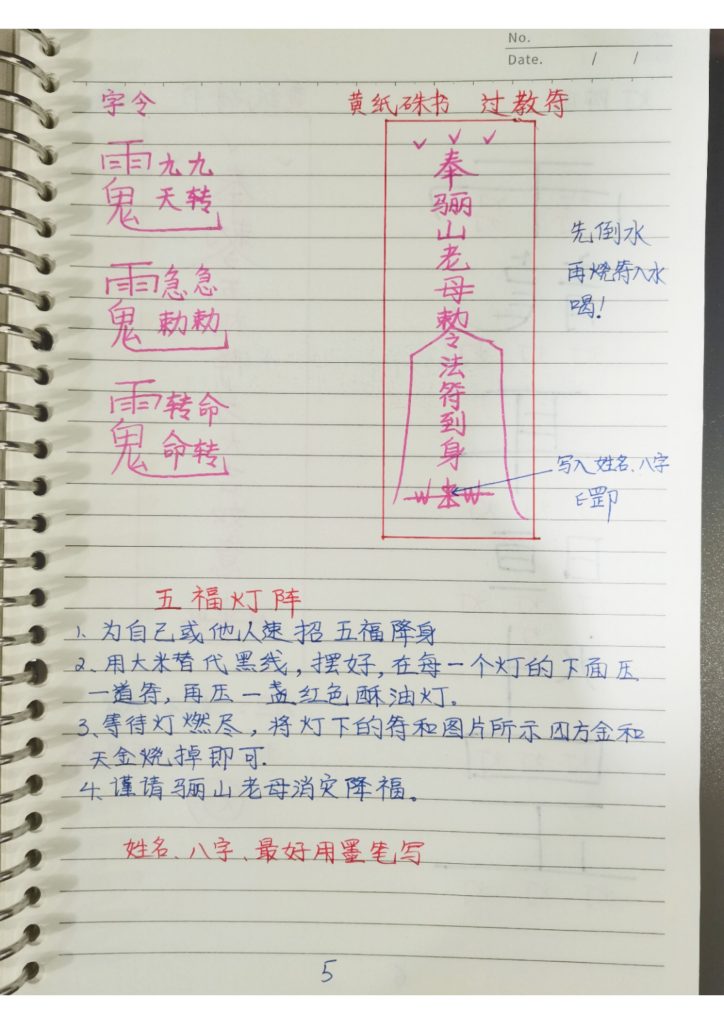 No.
Date. / /
字令
黄纸硃书 过教符
雨鬼 九九天转
雨鬼 急急勅勅
雨鬼 转命命转
奉骊山老母勅令法符到身
先倒水
再烧符入水
喝!
写入姓名、八字
五福灯阵
1、为自己或他人速招五福降身
2、用大米替代黑线,摆好,在每一个灯的下面压
一道符,再压一盏红色酥油灯.
3、等待灯燃尽,将灯下的符和图片所示四方金和
天金烧掉即可.
4、谨请骊山老母消灾降福。
姓名、八字、最好用墨笔写
5